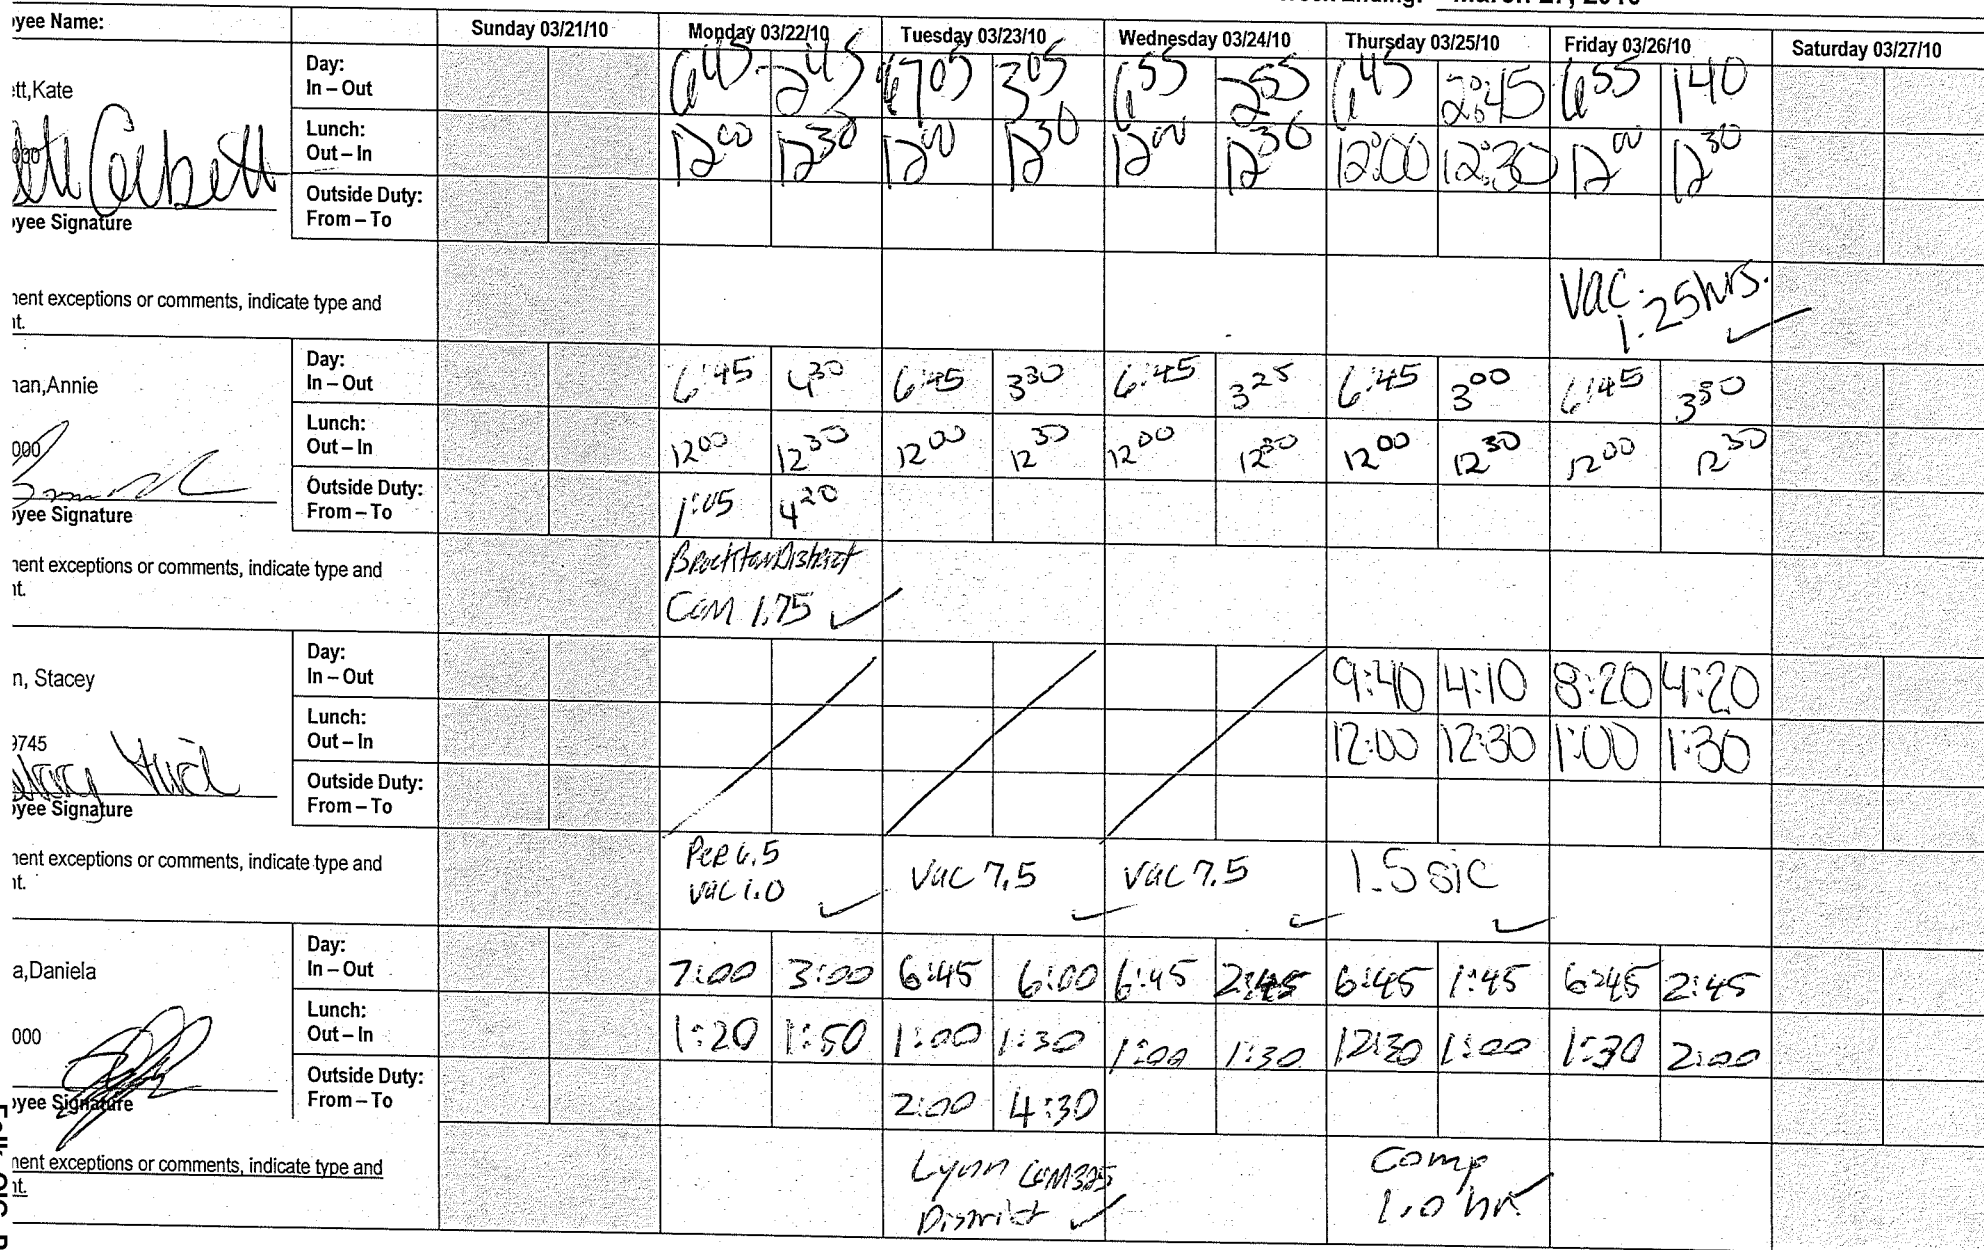 Week Ending: March 27, 2010
yee Name: Sunday 03/21/10 Monday 03/22/10 Tuesday 03/23/10 Wednesday 03/24/10 Thursday 03/25/10 Friday 03/26/10 Saturday 03/27/10
ett,Kate
Day: In – Out 6 45 - 2 45 7 05 3 05 6 55 2 55 6 45 2:45 6 55 1 40
Lunch: Out – In 12 00 12 30 12 00 12 30 12 00 12 30 12:00 12:30 12 00 12 30
Corbett
Outside Duty: From – To
yee Signature
ent exceptions or comments, indicate type and Vac. 1.25 hrs.
nt.
nan,Annie
Day: In – Out 6:45 4 30 6:45 3 30 6:45 3 25 6:45 3 00 6:45 3 30
000
Lunch: Out – In 12 00 12 30 12 00 12 30 12 00 12 30 12 00 12 30 12 00 12 30
Outside Duty: From – To 1:05 4 20
yee Signature
ent exceptions or comments, indicate type and Brockton District
nt. Com 1.75
n, Stacey
Day: In – Out 9:40 4:10 8:20 4:20
9745
Lunch: Out – In 12:00 12:30 1:00 1:30
Outside Duty: From – To
yee Signature
ent exceptions or comments, indicate type and Per 6.5 Vac 7.5 Vac 7.5 1.5 sic
nt. Vac 1.0
a,Daniela
Day: In – Out 7:00 3:00 6:45 6:00 6:45 2:45 6:45 1:45 6:45 2:45
000
Lunch: Out – In 1:20 1:50 1:00 1:30 1:00 1:30 12:30 1:00 1:30 2:00
Outside Duty: From – To 2:00 4:30
yee Signature
ent exceptions or comments, indicate type and Lynn Com 3.25 Comp
nt. District 1.0 hr